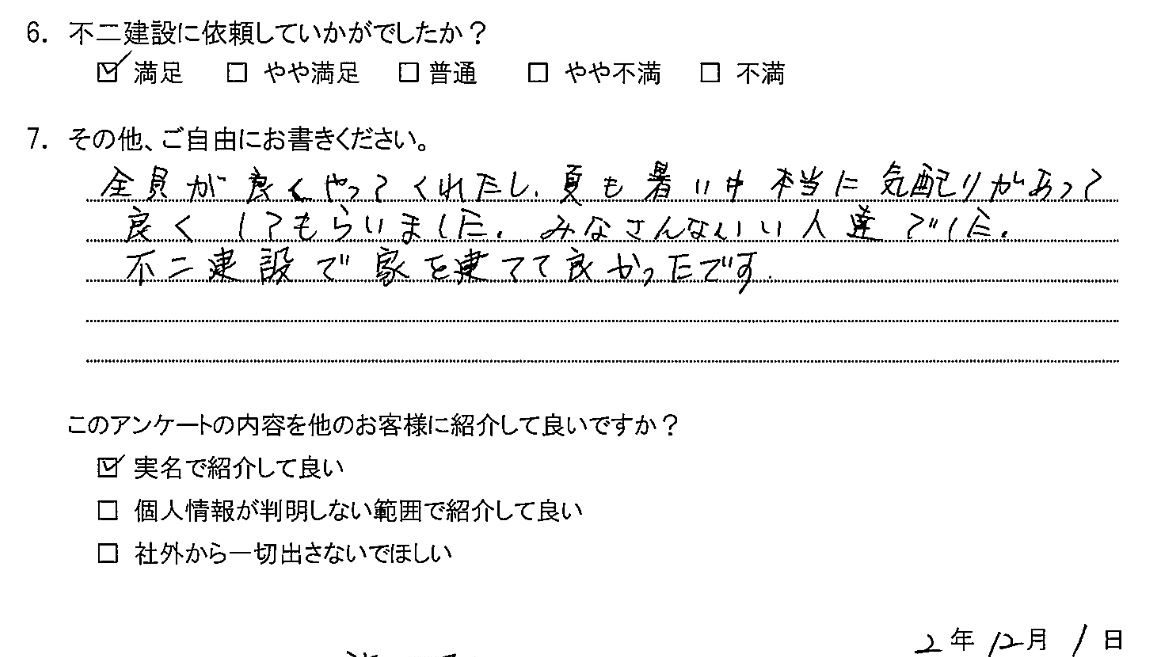 6. 不二建設に依頼していかがでしたか？
☑ 満足 □ やや満足 □ 普通 □ やや不満 □ 不満
7. その他、ご自由にお書きください。
全員が良くやってくれたし、夏も暑い中本当に気配りがあって
良くしてもらいました。みなさんないい人達でした。
不二建設で家を建てて良かったです。
このアンケートの内容を他のお客様に紹介して良いですか？
☑ 実名で紹介して良い
□ 個人情報が判明しない範囲で紹介して良い
□ 社外から一切出さないでほしい
2年12月1日